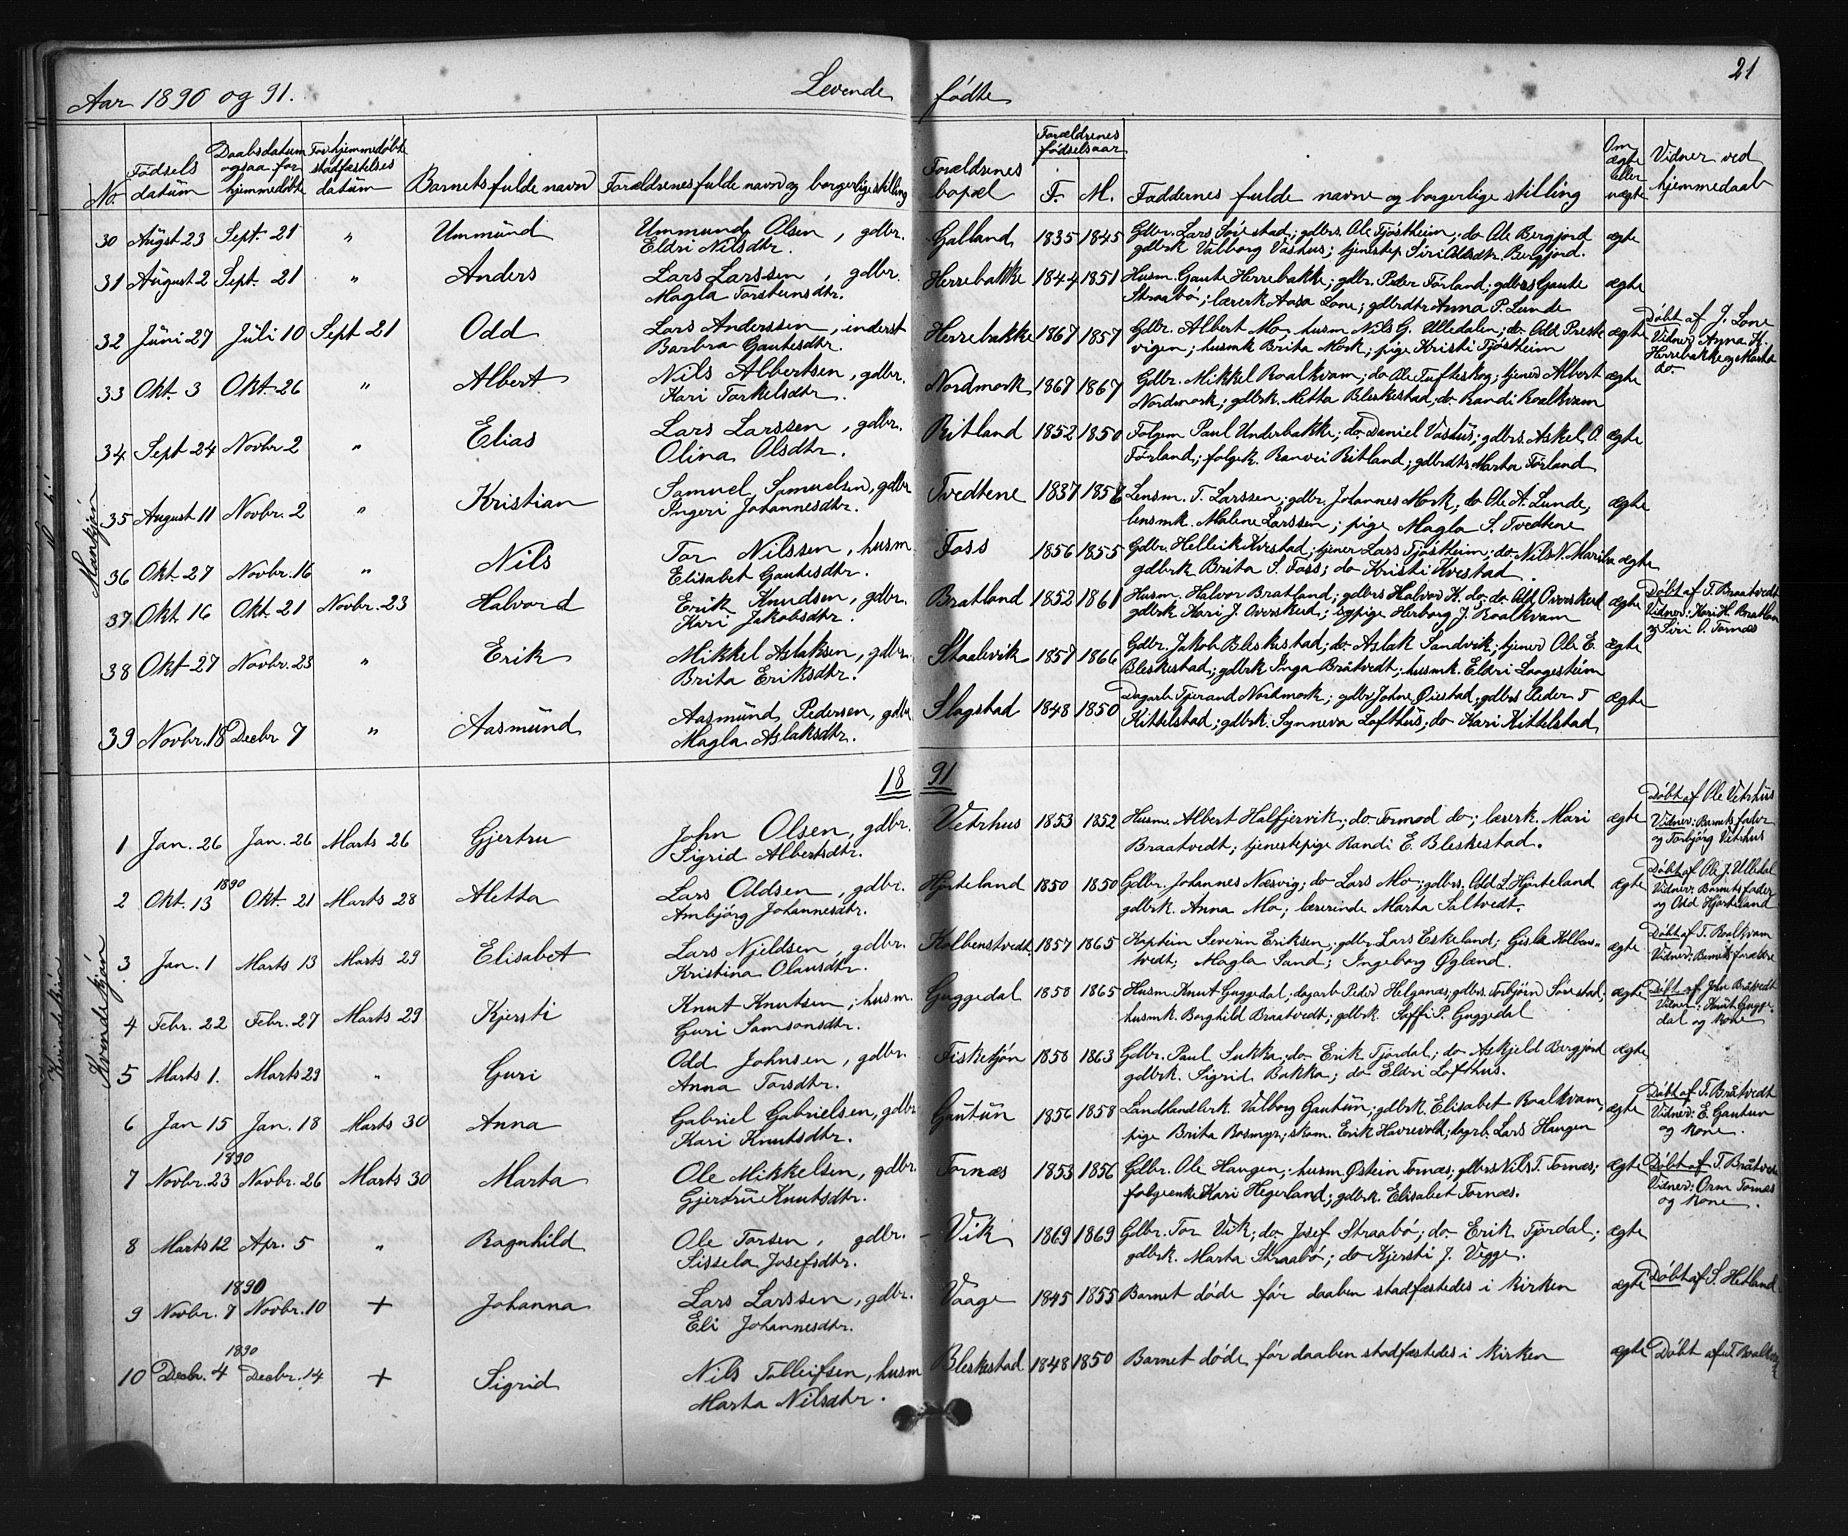 Aar 1890 og 91.
Levende fødte
21
No.
Fødsels datum
Daabsdatum ogsaa for hjemmedøbte
For hjemmedøbte stadfæstelses datum
Barnets fulde navn
Forældrenes fulde navn og borgerlige stilling
Forældrenes bopæl
Forældrenes fødselsaar
F. M.
Faddernes fulde navne og borgerlige stilling
Om ægte eller uægte
Vidner ved hjemmedaab
Mankjøn
30 August 23 Sept. 21 " Ummund Ummund Olsen, gdbr. Galland 1835 1845 Gdbr. Lars Søiestad; gdbrs. Ole Tjøstheim; do Ole Bergfjord ægte
Eldri Nilsdtr. gdbrk Valborg Vashus; tjenstep Siri Oldsdtr. Bergfjord.
31 August 2 Sept. 21 " Anders Lars Larssen, gdbr. Herrebakke 1844 1851 Husm. Gaute Herrebakke; gdbr. Peder Førland; gdbrs Gaute ægte
Magla Torsteinsdtr. Straabø; lærerk Aasa Lone; gdbrdtr Anna P. Lunde
32 Juni 27 Juli 10 Sept 21 Odd Lars Anderssen, inderst Herrebakke 1867 1857 Gdbr. Albert Mo, husm Nils G. Ulledalen; do Odd Prestvigen; husmk Brita Mork; pige Kristi Tjøstheim ægte Døbt af J. Lone
Barbra Gautesdtr. Vidner Anna K. Herrebakke og Marta do.
33 Okt. 3 Okt. 26 " Albert Nils Albertsen, gdbr. Nordmork 1867 1867 Gdbr. Mikkel Roalkvam; do Ole Tufteskog; tjener Albert ægte
Kari Torkelsdtr. Nordmork; gdbrk. Metta Bleskestad; do Randi Roalkvam
34 Sept 24 Novbr. 2 " Elias Lars Larssen, gdbr. Ritland 1852 1850 Folgem Paul Underbakke; do Daniel Vashus; gdbrs. Askel O. ægte
Olina Olsdtr. Førland; folgek. Ranvei Ritland; gdbrdtr Marta Førland
35 August 11 Novbr. 2 " Kristian Samuel Samuelsen, gdbr Tvedtene 1837 1856 Lensm. T. Larssen; gdbr. Johannes Mork, do Ole A. Lunde, ægte
Ingeri Johannesdtr. lensmk. Malene Larssen; pige Magla S. Tvedtene
36 Okt. 27 Novbr. 16 " Nils Tor Nilssen, husm. Foss 1856 1855 Gdbr. Helleik Kvestad; tjener Lars Tjøstheim; do Nils N. ægte
Elisabet Gautesdtr. gdbrk Brita S. Foss; do Kristi Kvestad.
37 Okt 16 Okt. 21 Novbr. 23 Halvord Erik Knudsen, gdbr. Bratland 1852 1861 Husm. Halvor Bratland; gdbrs Halvor K. do; do Odd Overskeid ægte Døbt af T. Braatvedt
Kari Jakobsdtr. gdbrk Kari J. Overskeid; sypige Herborg J. Roalkvam Vidner: Kari H. Bratland og Siri O. Tornæs
38 Okt 27 Novbr. 23 " Erik Mikkel Aslaksen, gdbr. Staalevik 1857 1866 Gdbr. Jakob Bleskestad; do Aslak Sandvik; tjener Ole E. ægte
Brita Eriksdtr. Bleskestad; gdbrk Inga Bråtvedt; husmk. Eldri Laagesteim
39 Novbr. 18 Decbr 7 " Aasmund Aasmund Pedersen, gdbr Slagstad 1848 1850 Dagarb. Tjerand Nordmork; gdbr Johne Øiestad; gdbrs Peder T ægte
Magla Aslaksdtr. Kittelstad; gdbrk. Synneva Lofthus, do Kari Kittelstad
1891
Kvindekjøn
1 Jan. 26 Jan. 26 Marts 26 Gjertru John Olsen, gdbr. Vetrhus 1853 1852 Husm. Albert Halfjervik; do Tormod do; lærerk. Mari ægte Døbt af Ole Vetrhus
Sigrid Albertsdtr. Braatvedt; tjenestepige Randi E. Bleskestad. Vidner: Barnets fader og Torbjørg Vetrhus
2 1890 Okt. 13 Okt. 21 Marts 28 Aletta Lars Oddsen, gdbr. Hjorteland 1850 1850 Gdbr. Johannes Næsvig; do Lars Mo; gdbrs. Odd L. Hjorteland ægte Døbt af Ole J. Ulledal
Ambjørg Johannesdtr. gdbrk. Anna Mo; lærerinde Marta Saltvedt. Vidner: Barnets fader og Odd Hjorteland
3 Jan. 1 Marts 13 Marts 29 Elisabet Lars Njeldsen, gdbr. Kolbenstvedt 1857 1865 Kaptein Severin Eriksen; gdbr. Lars Eskeland; Gisle Kolbenstvedt; Magla Sand; Ingeborg Øgland. ægte Døbt af T. Roalkvam
Kristina Olausdtr. Vidner: Barnets forældre
4 Febr. 22 Febr. 27 Marts 29 Kjersti Knut Knutsen; husm. Guggedal 1858 1865 Husm Knut Guggedal; dagarb Peder Helganæs; gdbrs. Torbjørn Søiestad; ægte Døbt af John Bråtvedt
Guri Samsonsdtr. husmk. Borghild Braatvedt; gdbrk. Soffi P. Guggedal Vidner: Knut Guggedal og kone
5 Marts 1. Marts 29 " Guri Odd Johnsen, gdbr. Fisketjøn 1858 1863 Gdbr. Paul Sukka; do Erik Fjordal; do Askjeld Bergfjord ægte
Anna Torsdtr. gdbrk. Sigrid Bakka; do Eldri Lofthus.
6 Jan 15 Jan. 18 Marts 30 Anna Gabriel Gabrielsen, gdbr Gautun 1856 1858 Landhandlerk. Valborg Gautun; gdbrk. Elisabet Roalkvam; ægte Døbt af T. Bråtvedt
Kari Knutsdtr. pige Brita Bosmyr; skom. Erik Havrevold; dagrb. Lars Haugen Vidner: E. Gautun og kone.
7 1890 Novbr. 23 Novbr. 26 Marts 30 Marta Ole Mikkelsen, gdbr. Tornæs 1853 1856 Gdbr. Ole Haugen; husm Østein Tornæs; gdbrs Nils T. Tornæs; ægte Døbt af T. Bråtvedt
Gjertru Knutsdtr. folgeenk. Kari Hegerland; gdbrk. Elisabet Tornæs. Vidner: Orm Tornæs og kone.
8 Marts 12 Apr. 5 " Ragnhild Ole Torsen, gdbr. Vik 1869 1869 Gdbr. Tor Vik; do Josef Straabø; do Erik Fjordal; ægte
Sissela Josefsdtr. gdbrk. Marta Straabø; do Kjersti J. Vigge.
9 1890 Novbr. 7 Novbr. 10 + Johanna Lars Larssen, gdbr. Vaage 1845 1855 Barnet døde før daaben stadfæstedes i kirken ægte Døbt af S. Hetland
Eli Johannesdtr.
10 1890 Decbr. 4 Decbr. 14 + Sigrid Nils Tolleifsen, husm Bleskestad 1848 1850 Barnet døde før daaben stadfæstedes i kirken ægte Døbt af T. Roalkvam
Marta Nilsdtr.